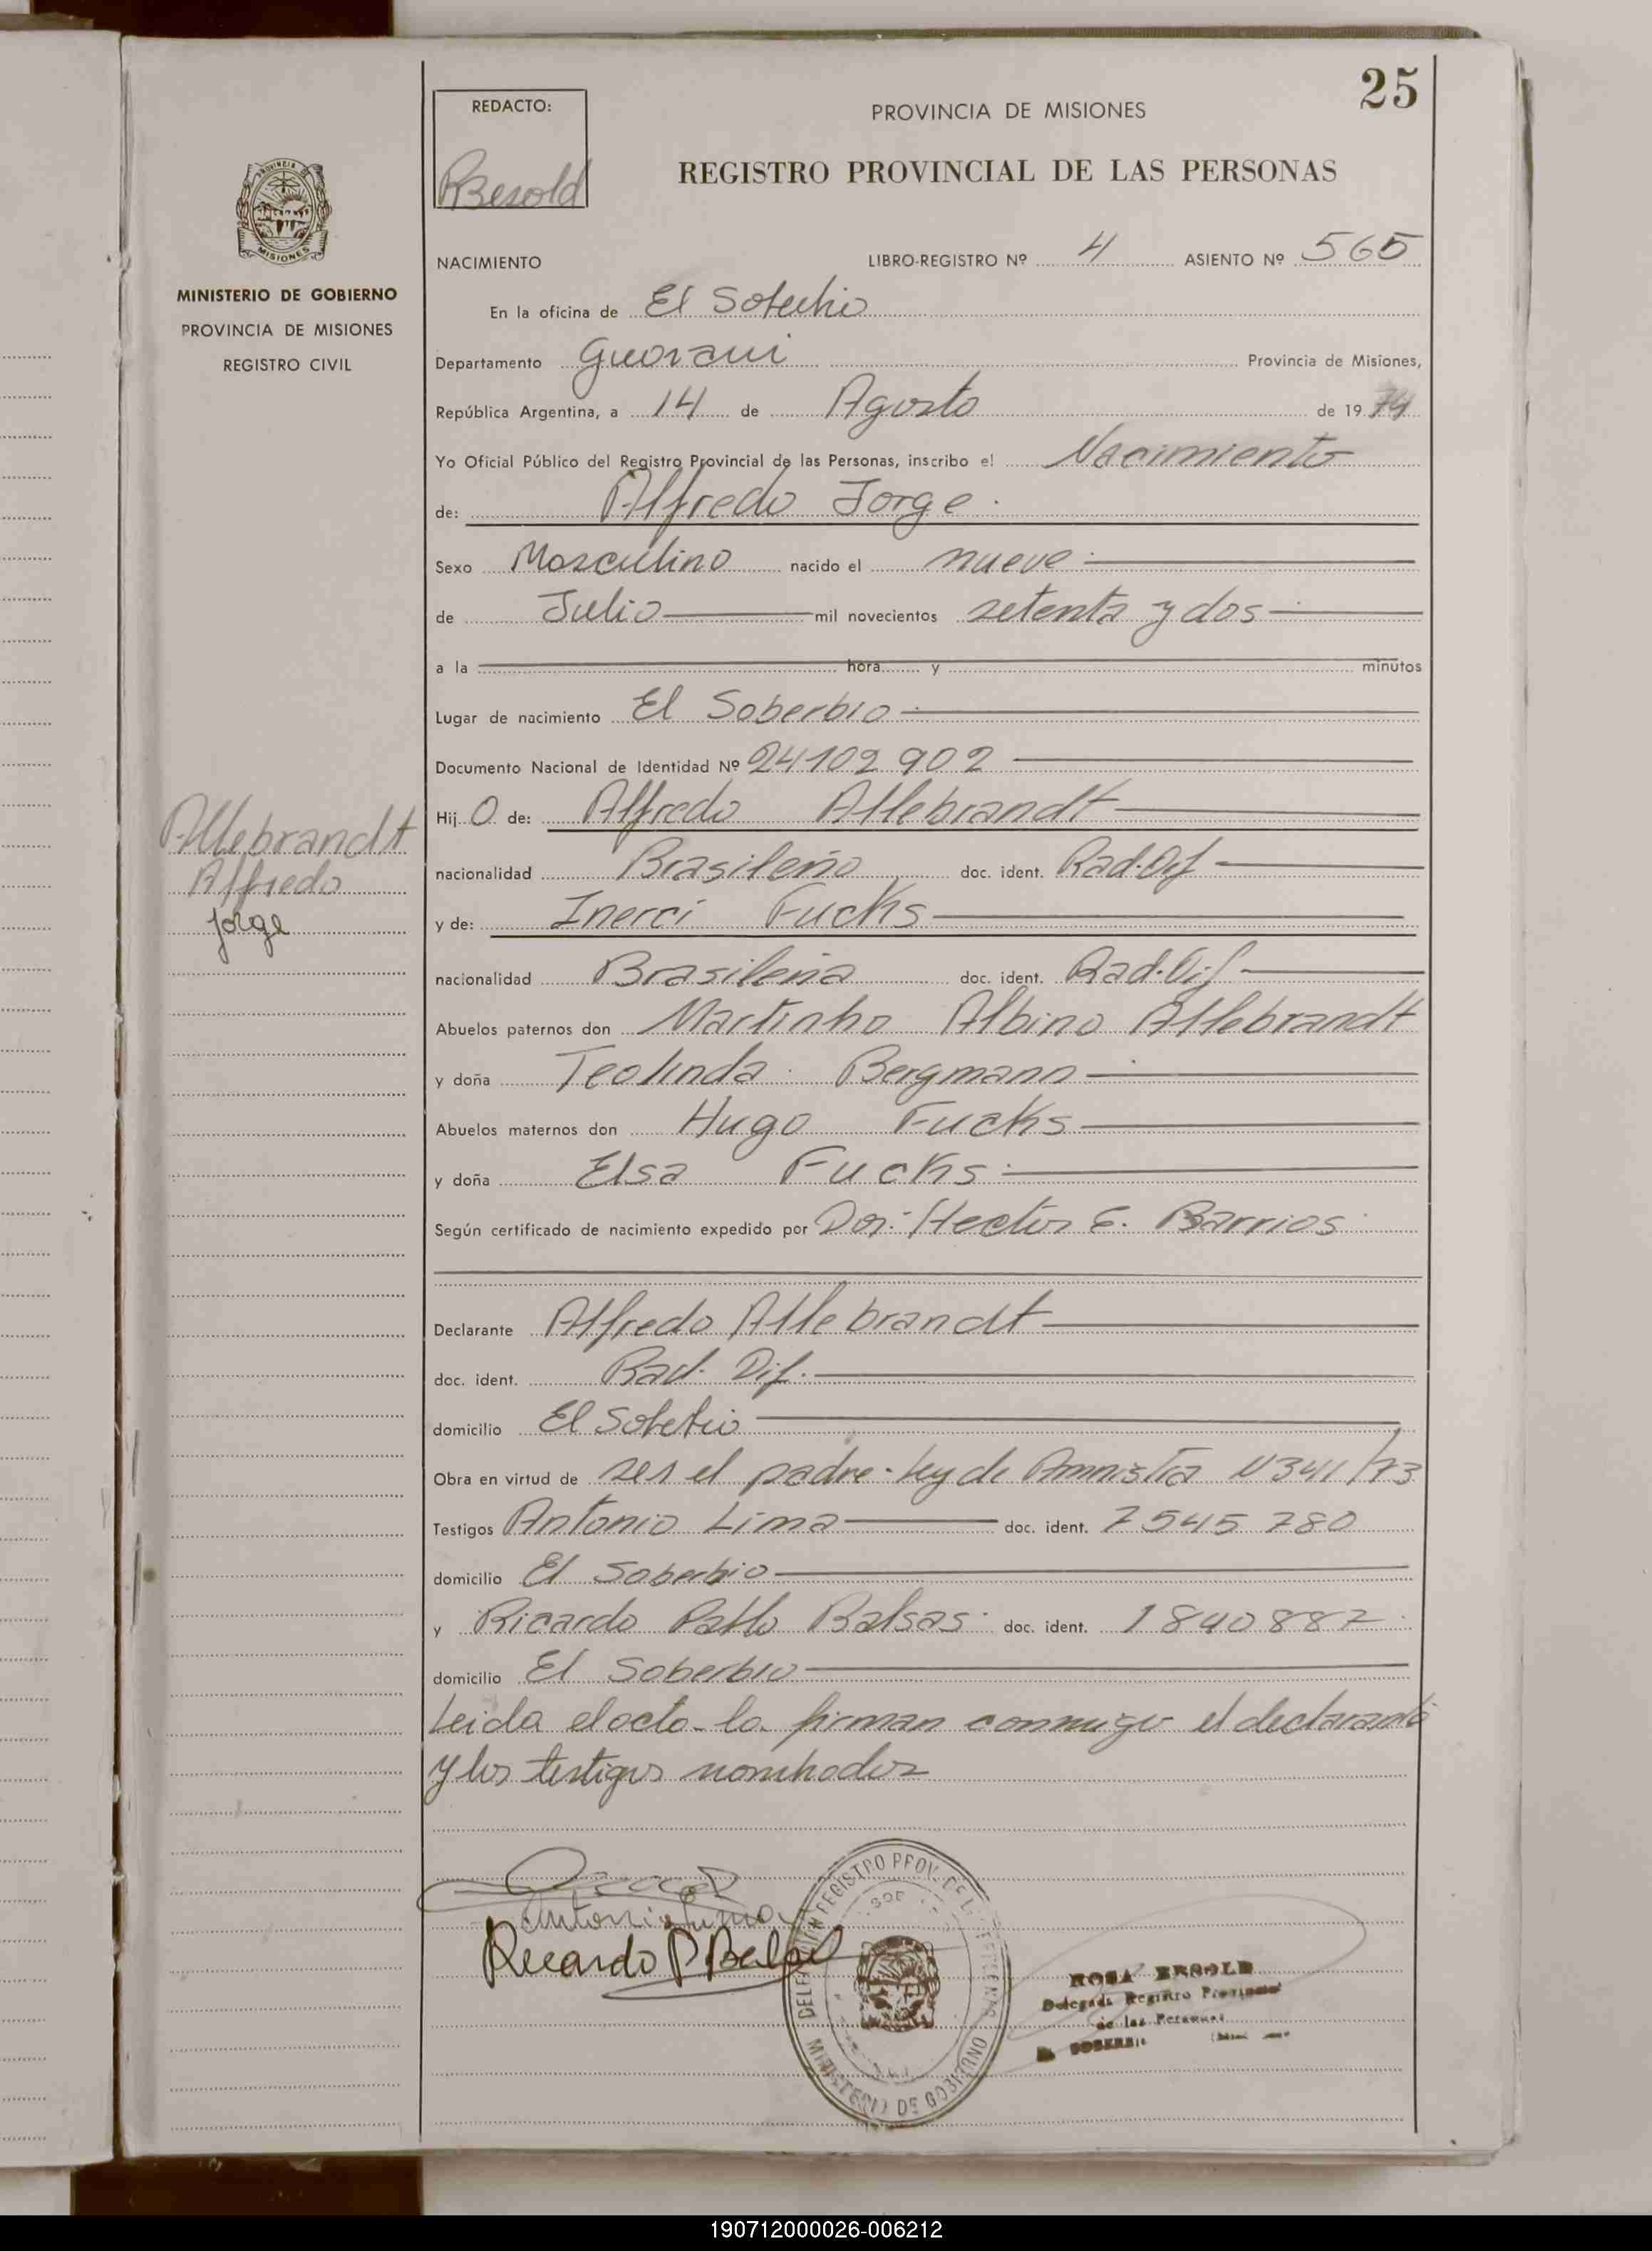 25
REDACTO:
RBesold
PROVINCIA DE MISIONES
REGISTRO PROVINCIAL DE LAS PERSONAS
MISIONES
MINISTERIO DE GOBIERNO
PROVINCIA DE MISIONES
REGISTRO CIVIL
NACIMIENTO LIBRO-REGISTRO Nº 4 ASIENTO Nº 565
En la oficina de El Soberbio
Departamento Guarani Provincia de Misiones,
República Argentina, a 14 de Agosto de 19 74
Yo Oficial Público del Registro Provincial de las Personas, inscribo el Nacimiento
de: Alfredo Jorge.
Sexo Masculino nacido el nueve
de Julio mil novecientos setenta y dos
a la hora y minutos
Lugar de nacimiento El Soberbio
Documento Nacional de Identidad Nº 24102902
Hij O de: Alfredo Allebrandt
Allebrandt
Alfredo
Jorge
nacionalidad Brasileño doc. ident. Rad.Dif
y de: Inerci Fucks
nacionalidad Brasileña doc. ident. Rad.Dif
Abuelos paternos don Martinho Albino Allebrandt
y doña Teolinda Bergmann
Abuelos maternos don Hugo Fucks
y doña Elsa Fucks
Según certificado de nacimiento expedido por Dor. Hector E. Barrios
Declarante Alfredo Allebrandt
doc. ident. Rad. Dif.
domicilio El Soberbio
Obra en virtud de ser el padre - Ley de Amnistia N 341/73
Testigos Antonio Lima doc. ident. 7545780
domicilio El Soberbio
y Ricardo Pablo Balsas doc. ident. 1840887
domicilio El Soberbio
Leida el acta la firman conmigo el declarante
y los testigos nombrados
Antonio Lima
Ricardo P Balsas
REGISTRO PROV. DE L
MINISTERIO DE GOBIERNO
ROSA BESOLD
Delegada Registro Provincial
de las Personas
EL SOBERBIO
190712000026-006212